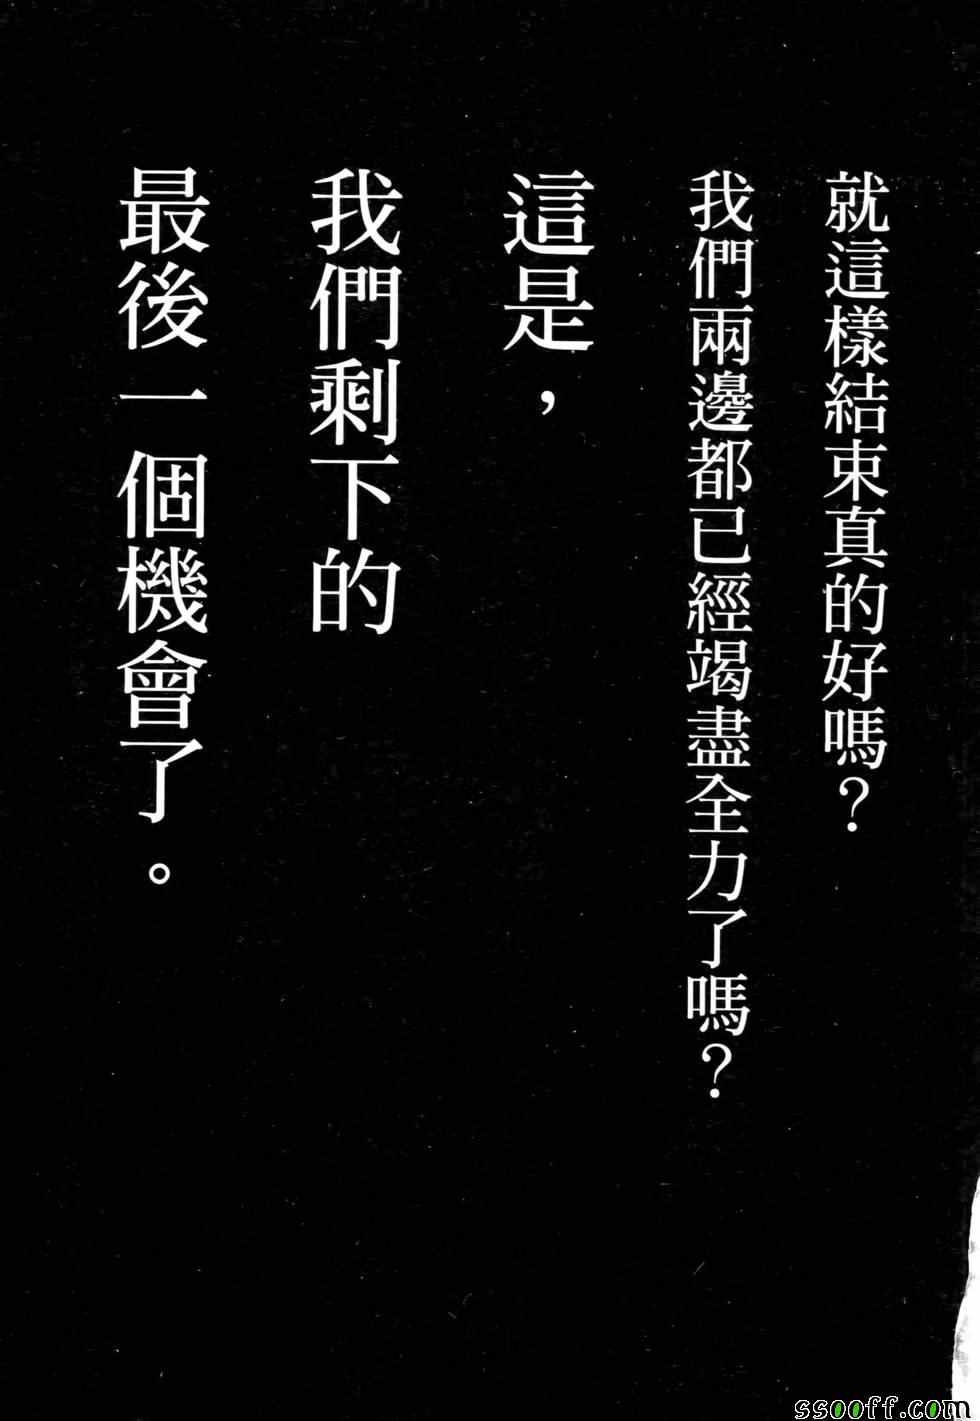 就這樣結束真的好嗎？
我們兩邊都已經竭盡全力了嗎？
這是，
我們剩下的
最後一個機會了。
ssooff.com